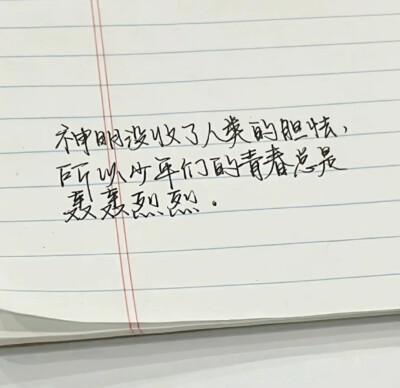 神明没收了人类的胆怯，
所以少年们的青春总是
轰轰烈烈．